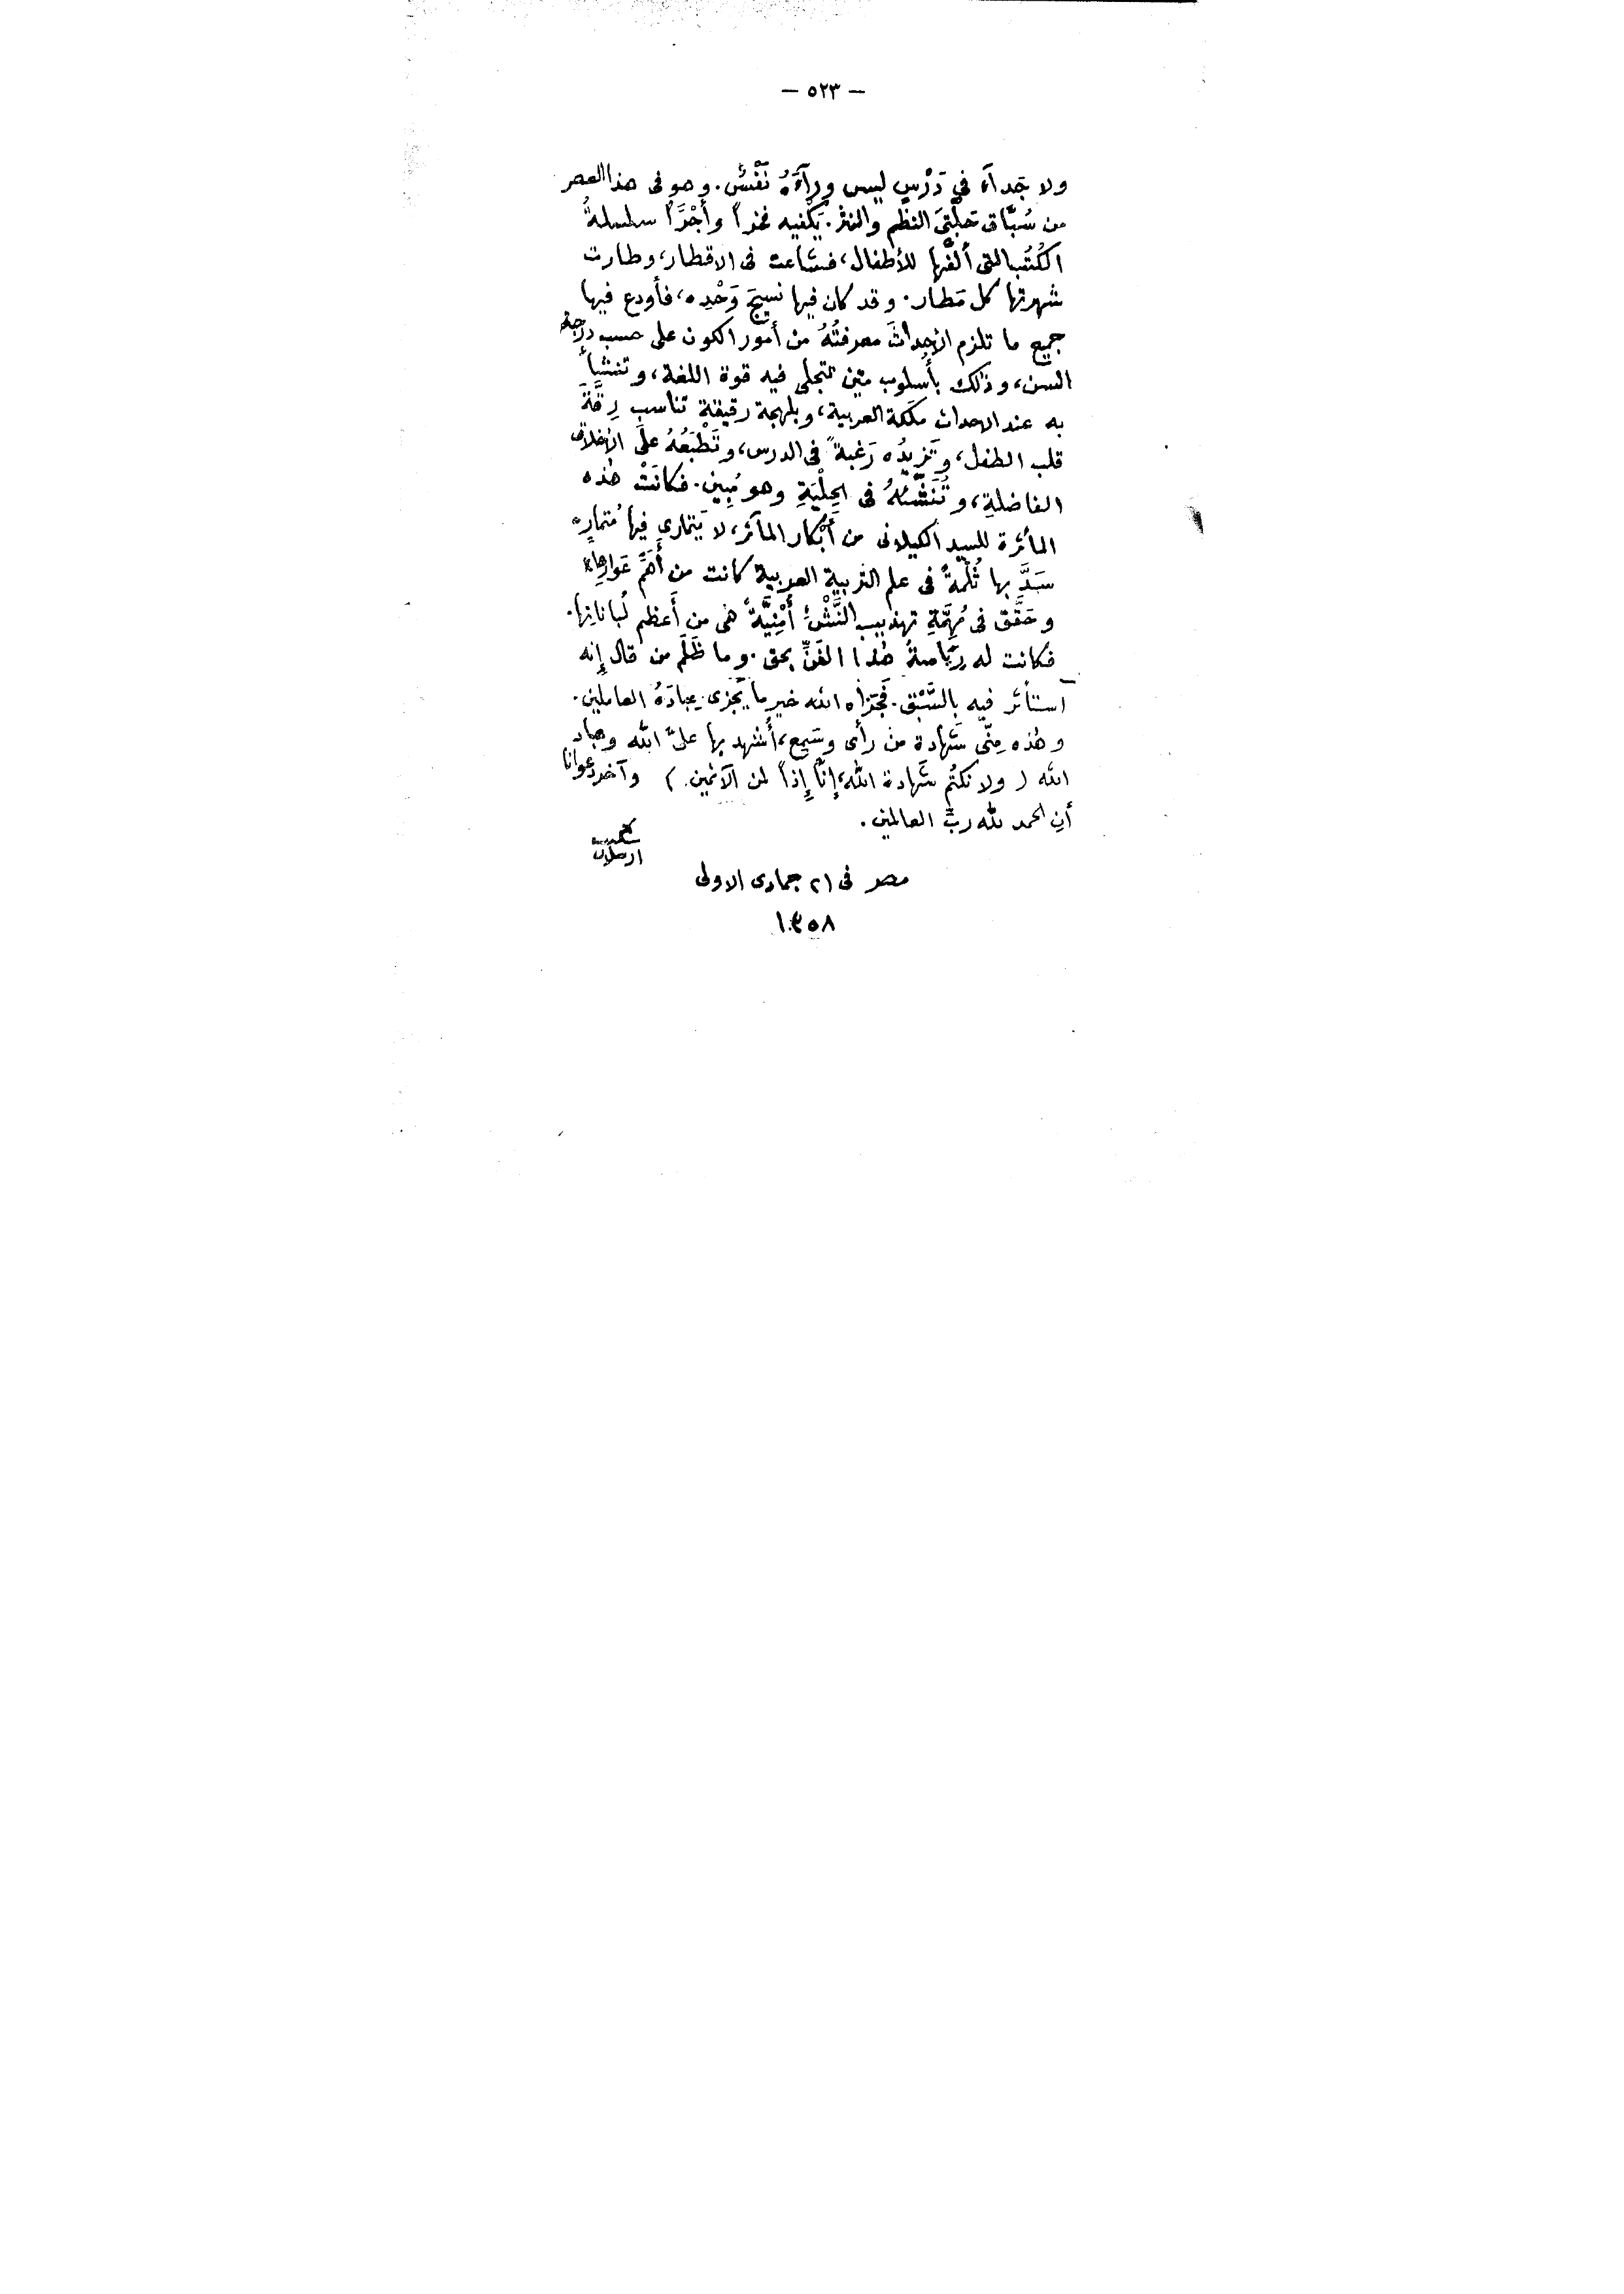 — ٥٢٣ —
ولا جَداءَ في دَرْسٍ ليس وراءَهُ نَفْسٌ. وهو فى هذا العصر
من سُبَّاق حَلْبَتَيِ النظم والنثر. يَكْفيه فخراً وأَجْرًا سلسلةُ
الكُتُب التى ألَّفها للأطفال، فشاعت فى الاقطار، وطارت
شهرتها كل مَطار. وقد كان فيها نسيجَ وَحْدِه، فأودع فيها
جميع ما تلزم الأحداثَ معرفتُهُ من أمور الكون على حسب درجة
السن، وذلك بأسلوب متين تتجلى فيه قوة اللغة، وتنشأ
به عند الاحداث مَلَكة العربية، وبلهجة رقيقة تناسب رِقَّةَ
قلب الطفل، وتَزيدُه رَغبةً فى الدرس، وتَطْبَعُهُ على الأخلاق
الفاضلةِ، وتُنَشِّئهُ فى الحِلْيَةِ وهو مُبِين. فكانَتْ هذه
المأثرة للسيد الكيلانى من أَبْكار المآثر، لا يَتمارى فيها مُتمارٍ.
سَدَّ بها ثُلْمةً فى علم التربية العربية كانت من أَهَمّ عَوارِها،
وحَقَّق فى مُهِمَّةِ تهذيب النَّشْءِ أُمْنِيَّةً هى من أَعظم لُباناتِها.
فكانت له رِيَاسةُ هذا الفَنِّ بحق. وما ظَلَم من قال إنه
استأثر فيه بالسَّبْق. فجَزَاه الله خير ما يَجْزى عِبادَهُ العاملين.
وهذه مِنّي شَهادة من رأى وسَمِع، أُشهد بها علىَّ الله وعباد
الله (ولا نكتُم شَهادة الله، إنَّا إِذاً لمن الآثمين.) وآخر دعوانا
أنِ الحمد لله ربِّ العالمين.
شكيب
ارسلان
مصر فى ٢١ جمادى الاولى
١٣٥٨